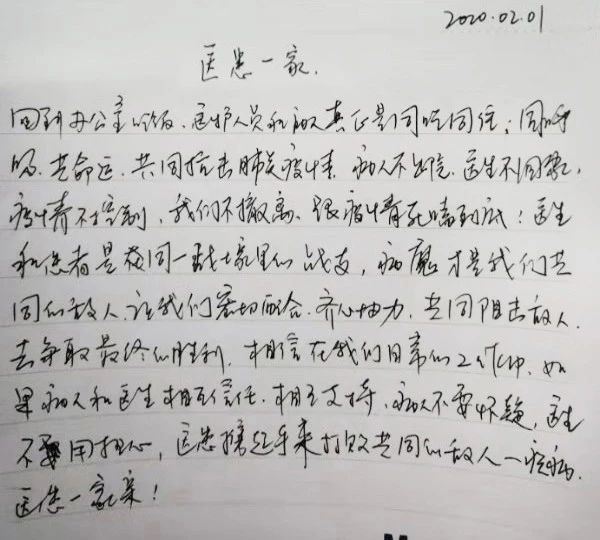 2020.02.01
医患一家.
回到办公室吃饭、医护人员和病人真正是同吃同住；同呼
吸、共命运、共同抗击肺炎疫情、病人不出院、医生不回家，
疫情不控制，我们不撤离、跟疫情死嗑到底！医生
和患者是在同一战壕里的战友，病魔才是我们共
同的敌人，让我们密切配合、齐心协力、共同阻击敌人、
去争取最终的胜利，相信在我们日常的工作中，如
果病人和医生相互信任、相互支持，病人不要怀疑，医生
不用担心，医患携起手来打败共同的敌人—疾病、
医患一家亲！